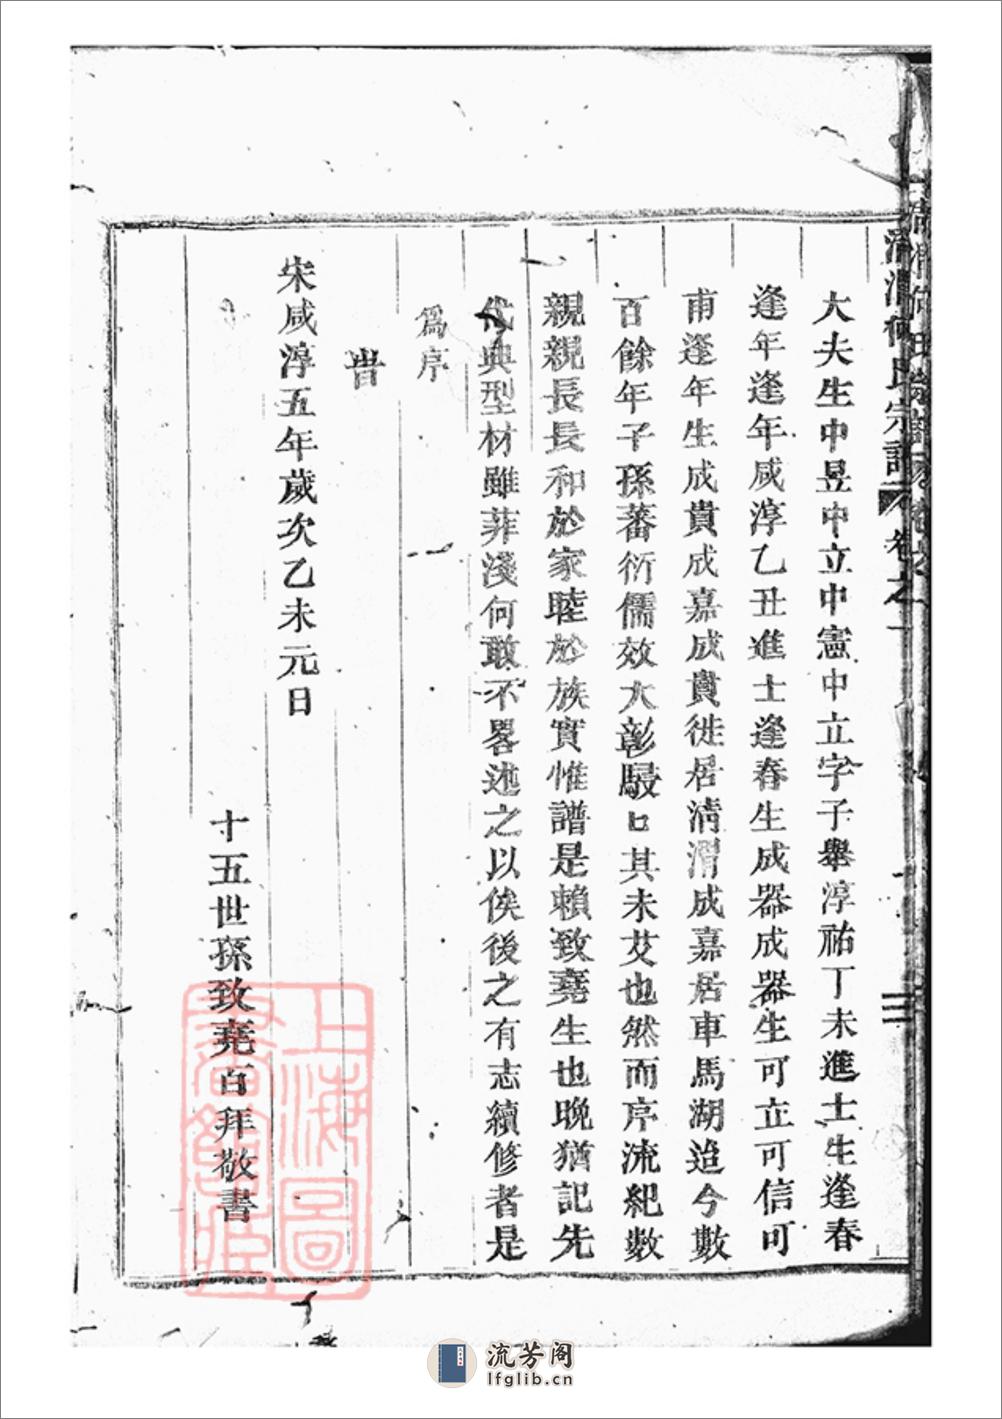 大夫生中昱中立中憲中立字子舉淳祐丁未進士生逢春
逢年逢年咸淳乙丑進士逢春生成器成器生可立可信可
甫逢年生成貴成嘉成貴徙居淸渭成嘉居車馬湖迨今數
百餘年子孫蕃衍儒效大彰駸口其未艾也然而序流紀數
親親長長和於家睦於族實惟譜是賴致堯生也晚猶記先
代典型材雖菲淺何敢不畧述之以俟後之有志續修者是
爲序
旹
宋咸淳五年歲次乙未元日
十五世孫致堯百拜敬書
淸渭何氏宗譜
卷之一
三
上海圖書館藏
流芳阁
lfglib.cn